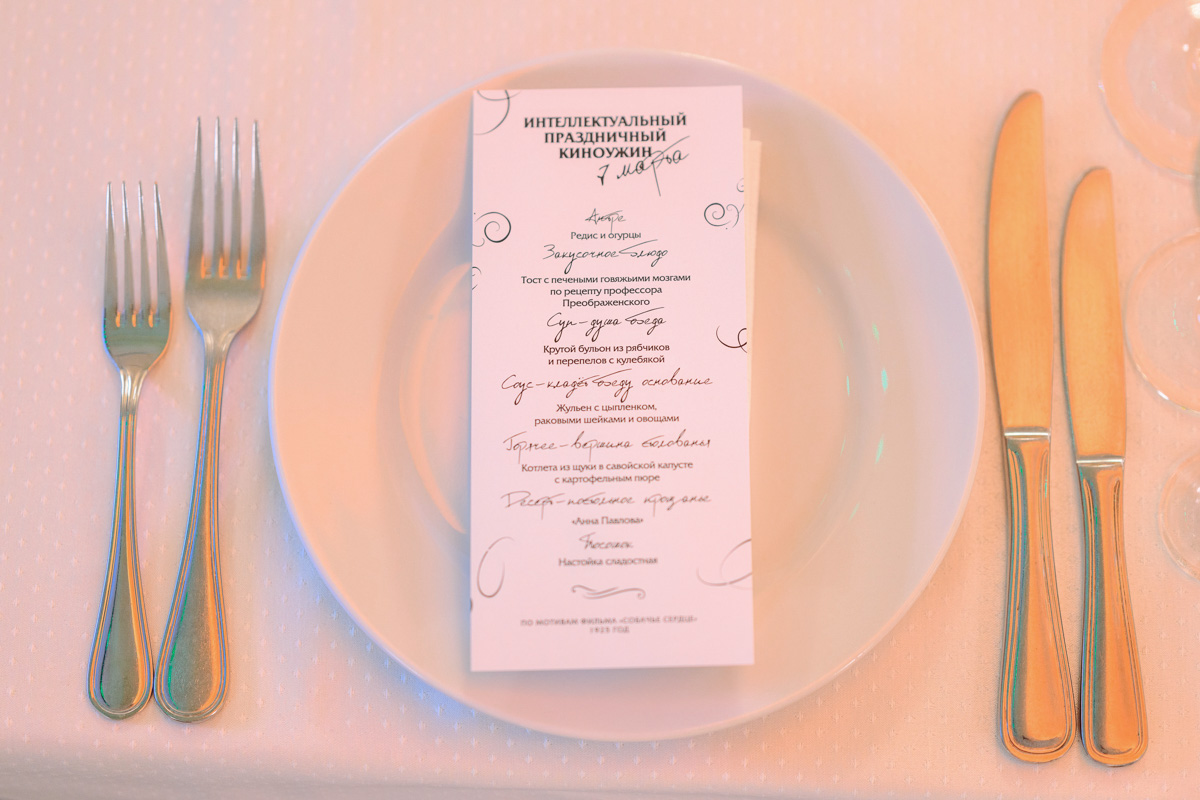 ИНТЕЛЛЕКТУАЛЬНЫЙ
ПРАЗДНИЧНЫЙ
КИНОУЖИН
7 марта
Антре
Редис и огурцы
Закусочное блюдо
Тост с печеными говяжьими мозгами
по рецепту профессора
Преображенского
Суп-душа обеда
Крутой бульон из рябчиков
и перепелов с кулебякой
Соус-кладёт обеду основание
Жульен с цыпленком,
раковыми шейками и овощами
Горячее-вершина
Котлета из щуки в савойской капусте
с картофельным пюре
Десерт-
«Анна Павлова»
Посошок
Настойка сладостная
ПО МОТИВАМ ФИЛЬМА «СОБАЧЬЕ СЕРДЦЕ»
1925 ГОД